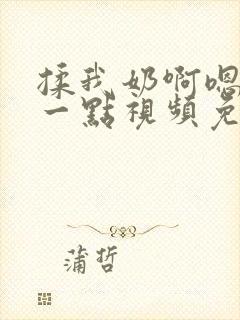 揉我奶啊嗯
一點視頻免
蒲哲